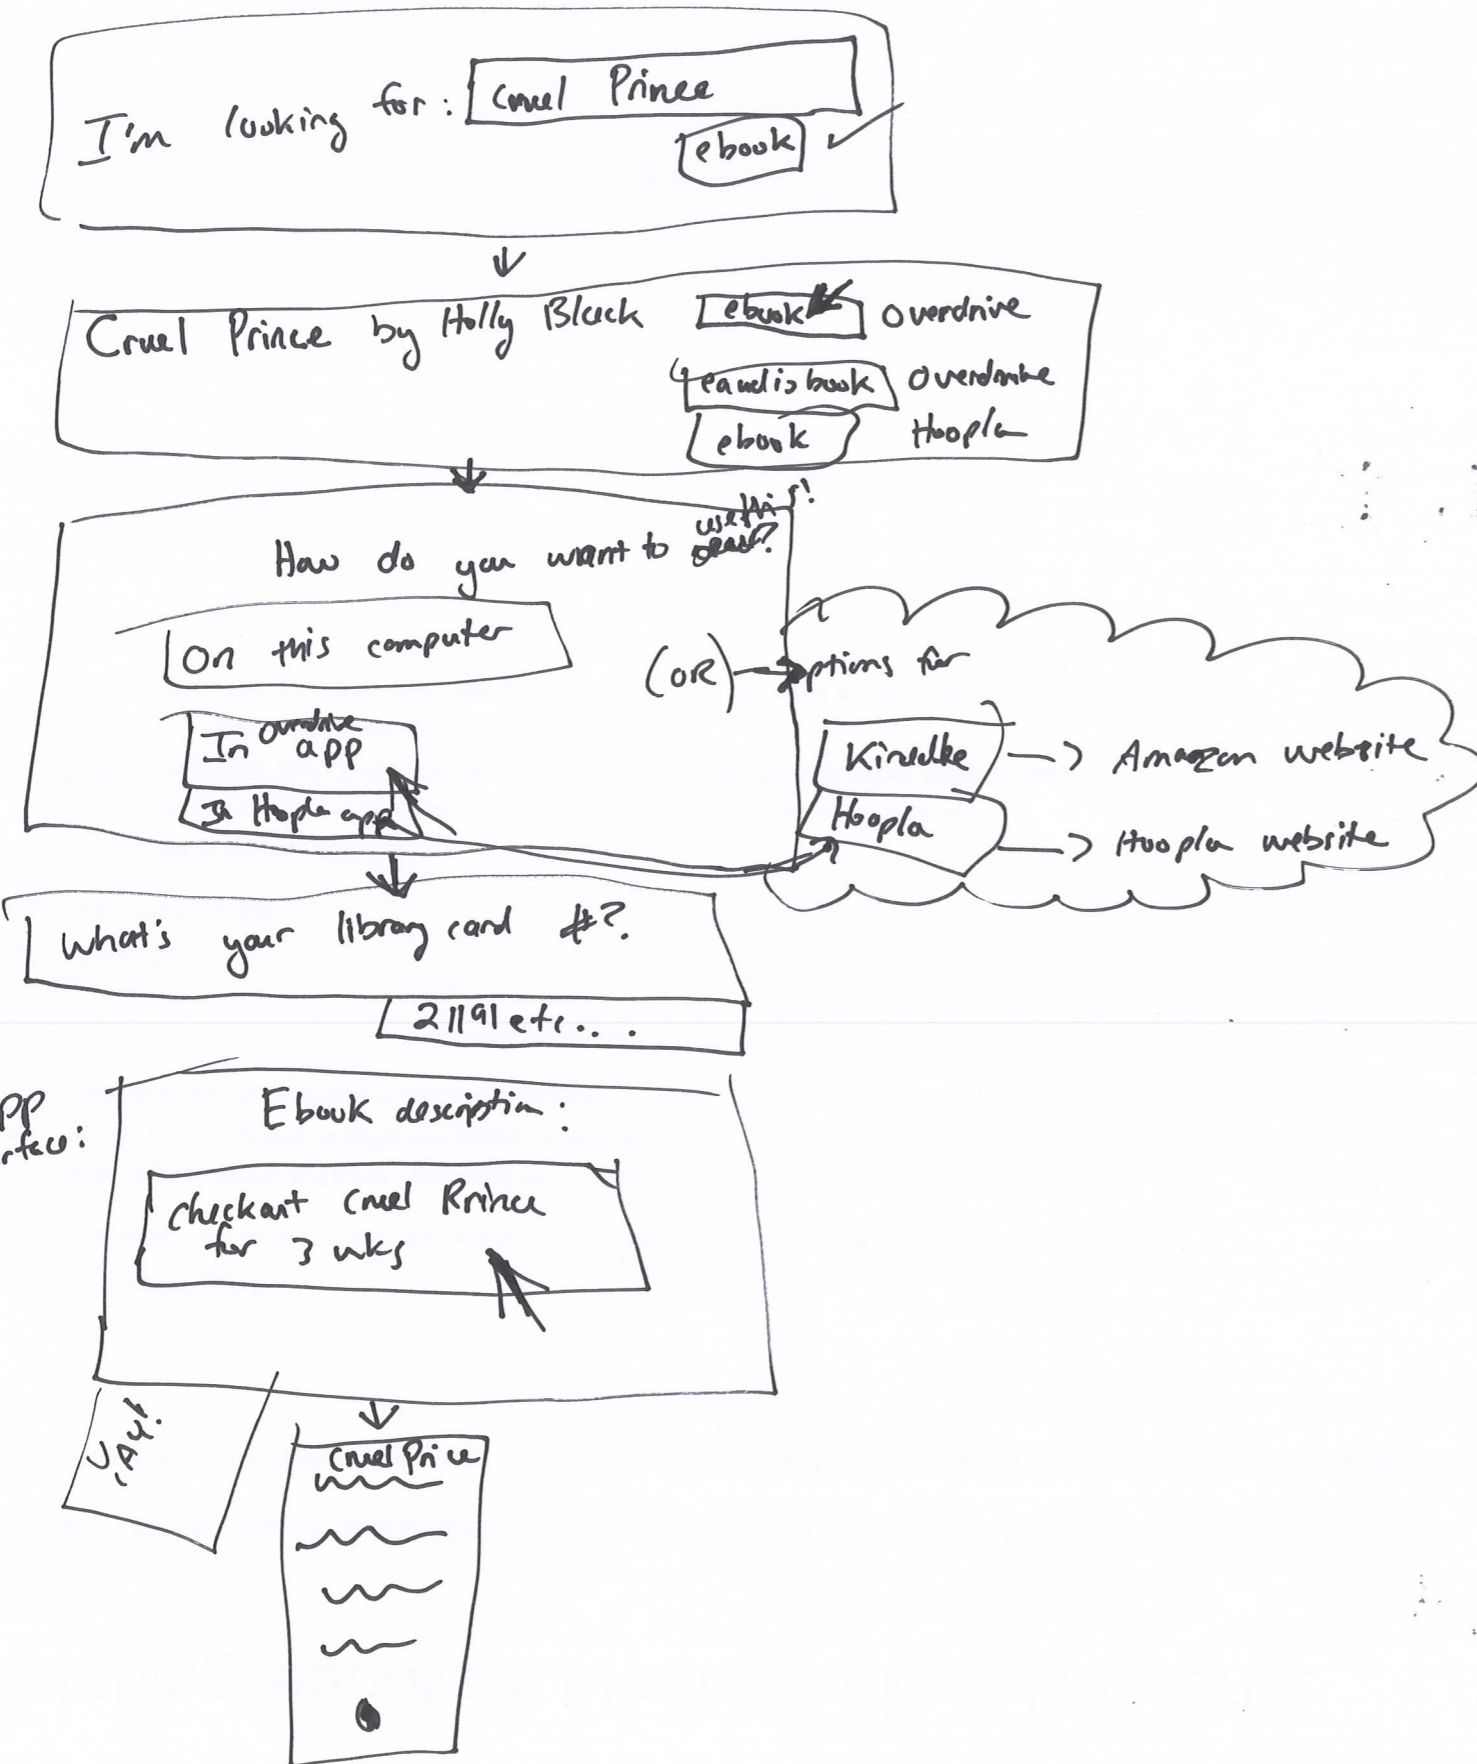 I'm looking for: Cruel Prince
ebook
Cruel Prince by Holly Black ebook Overdrive
eaudiobook Overdrive
ebook Hoopla
How do you want to use this!
On this computer
In Overdrive app
In Hoopla app
(OR) options for
Kinedlke → Amaozon website
Hoopla → Hoopla website
What's your library card #?
21191 etc...
Ebook description:
Checkout Cruel Prince
for 3 wks
YAY!
Cruel Price